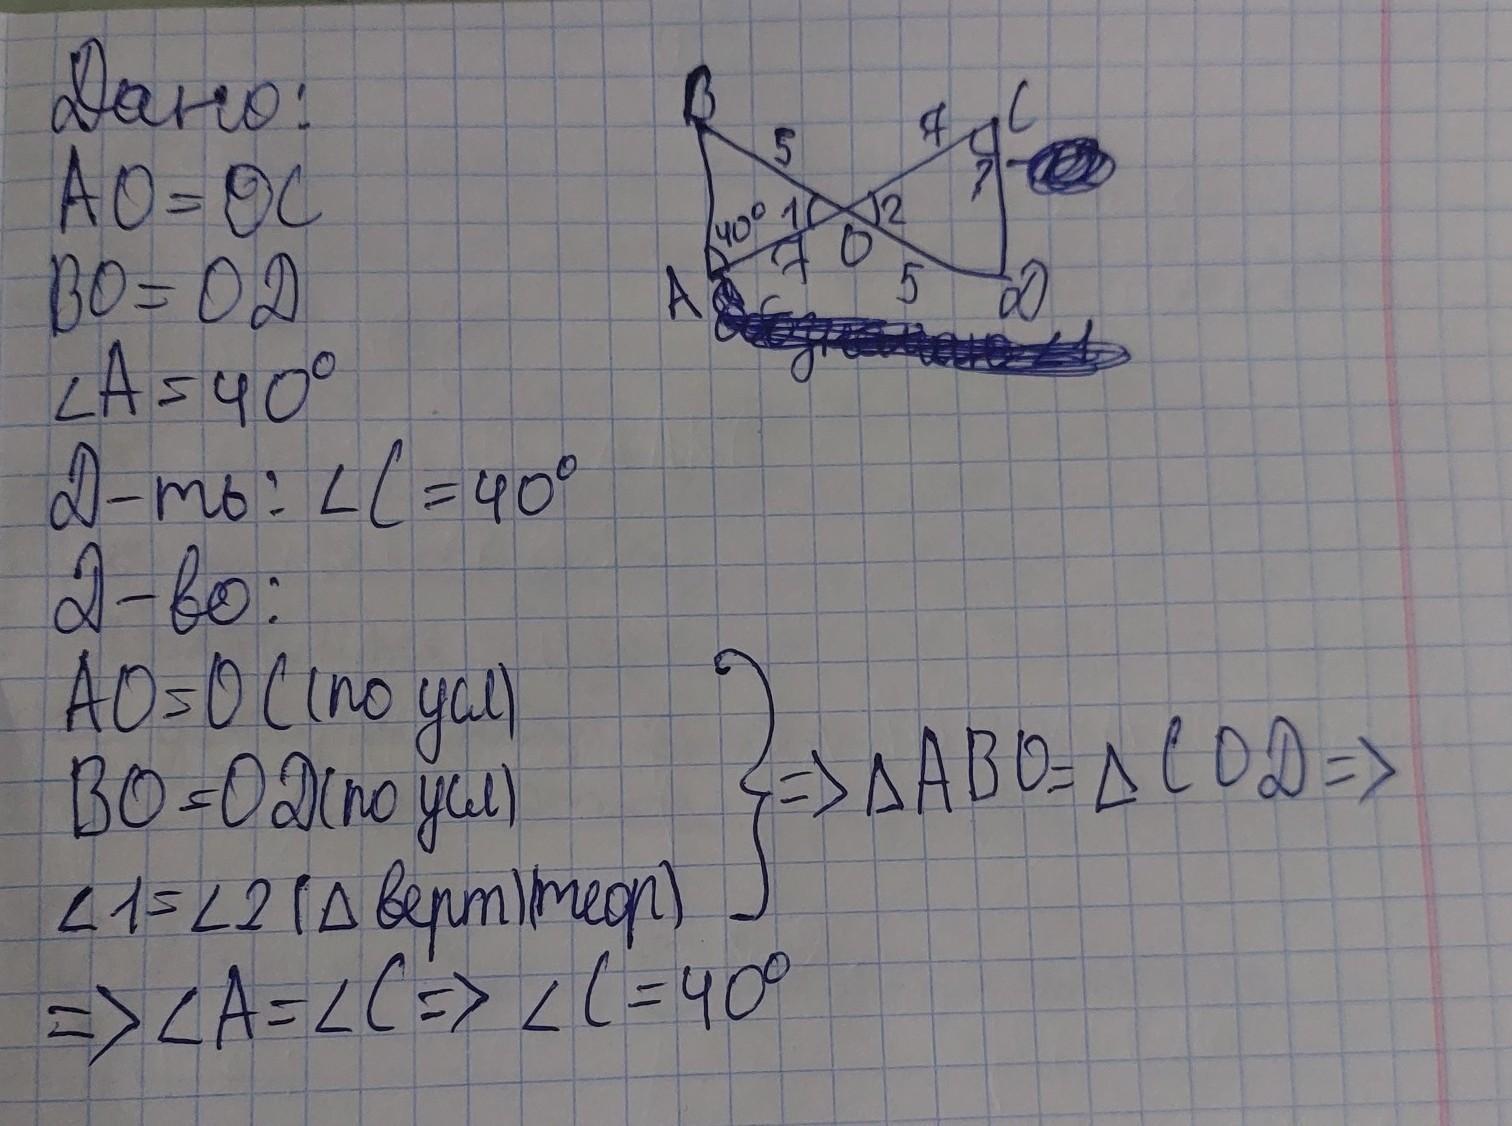 Дано:
AO = OC
BO = OD
∠A = 40°
Д-ть: ∠C = 40°
Д-во:
AO = OC (по усл)
BO = OD (по усл)
∠1 = ∠2 (Δ верт) (теор)
=> ΔABO = ΔCOD =>
=> ∠A = ∠C => ∠C = 40°
B
5
7
C
?
40°
1
2
7
O
5
A
D